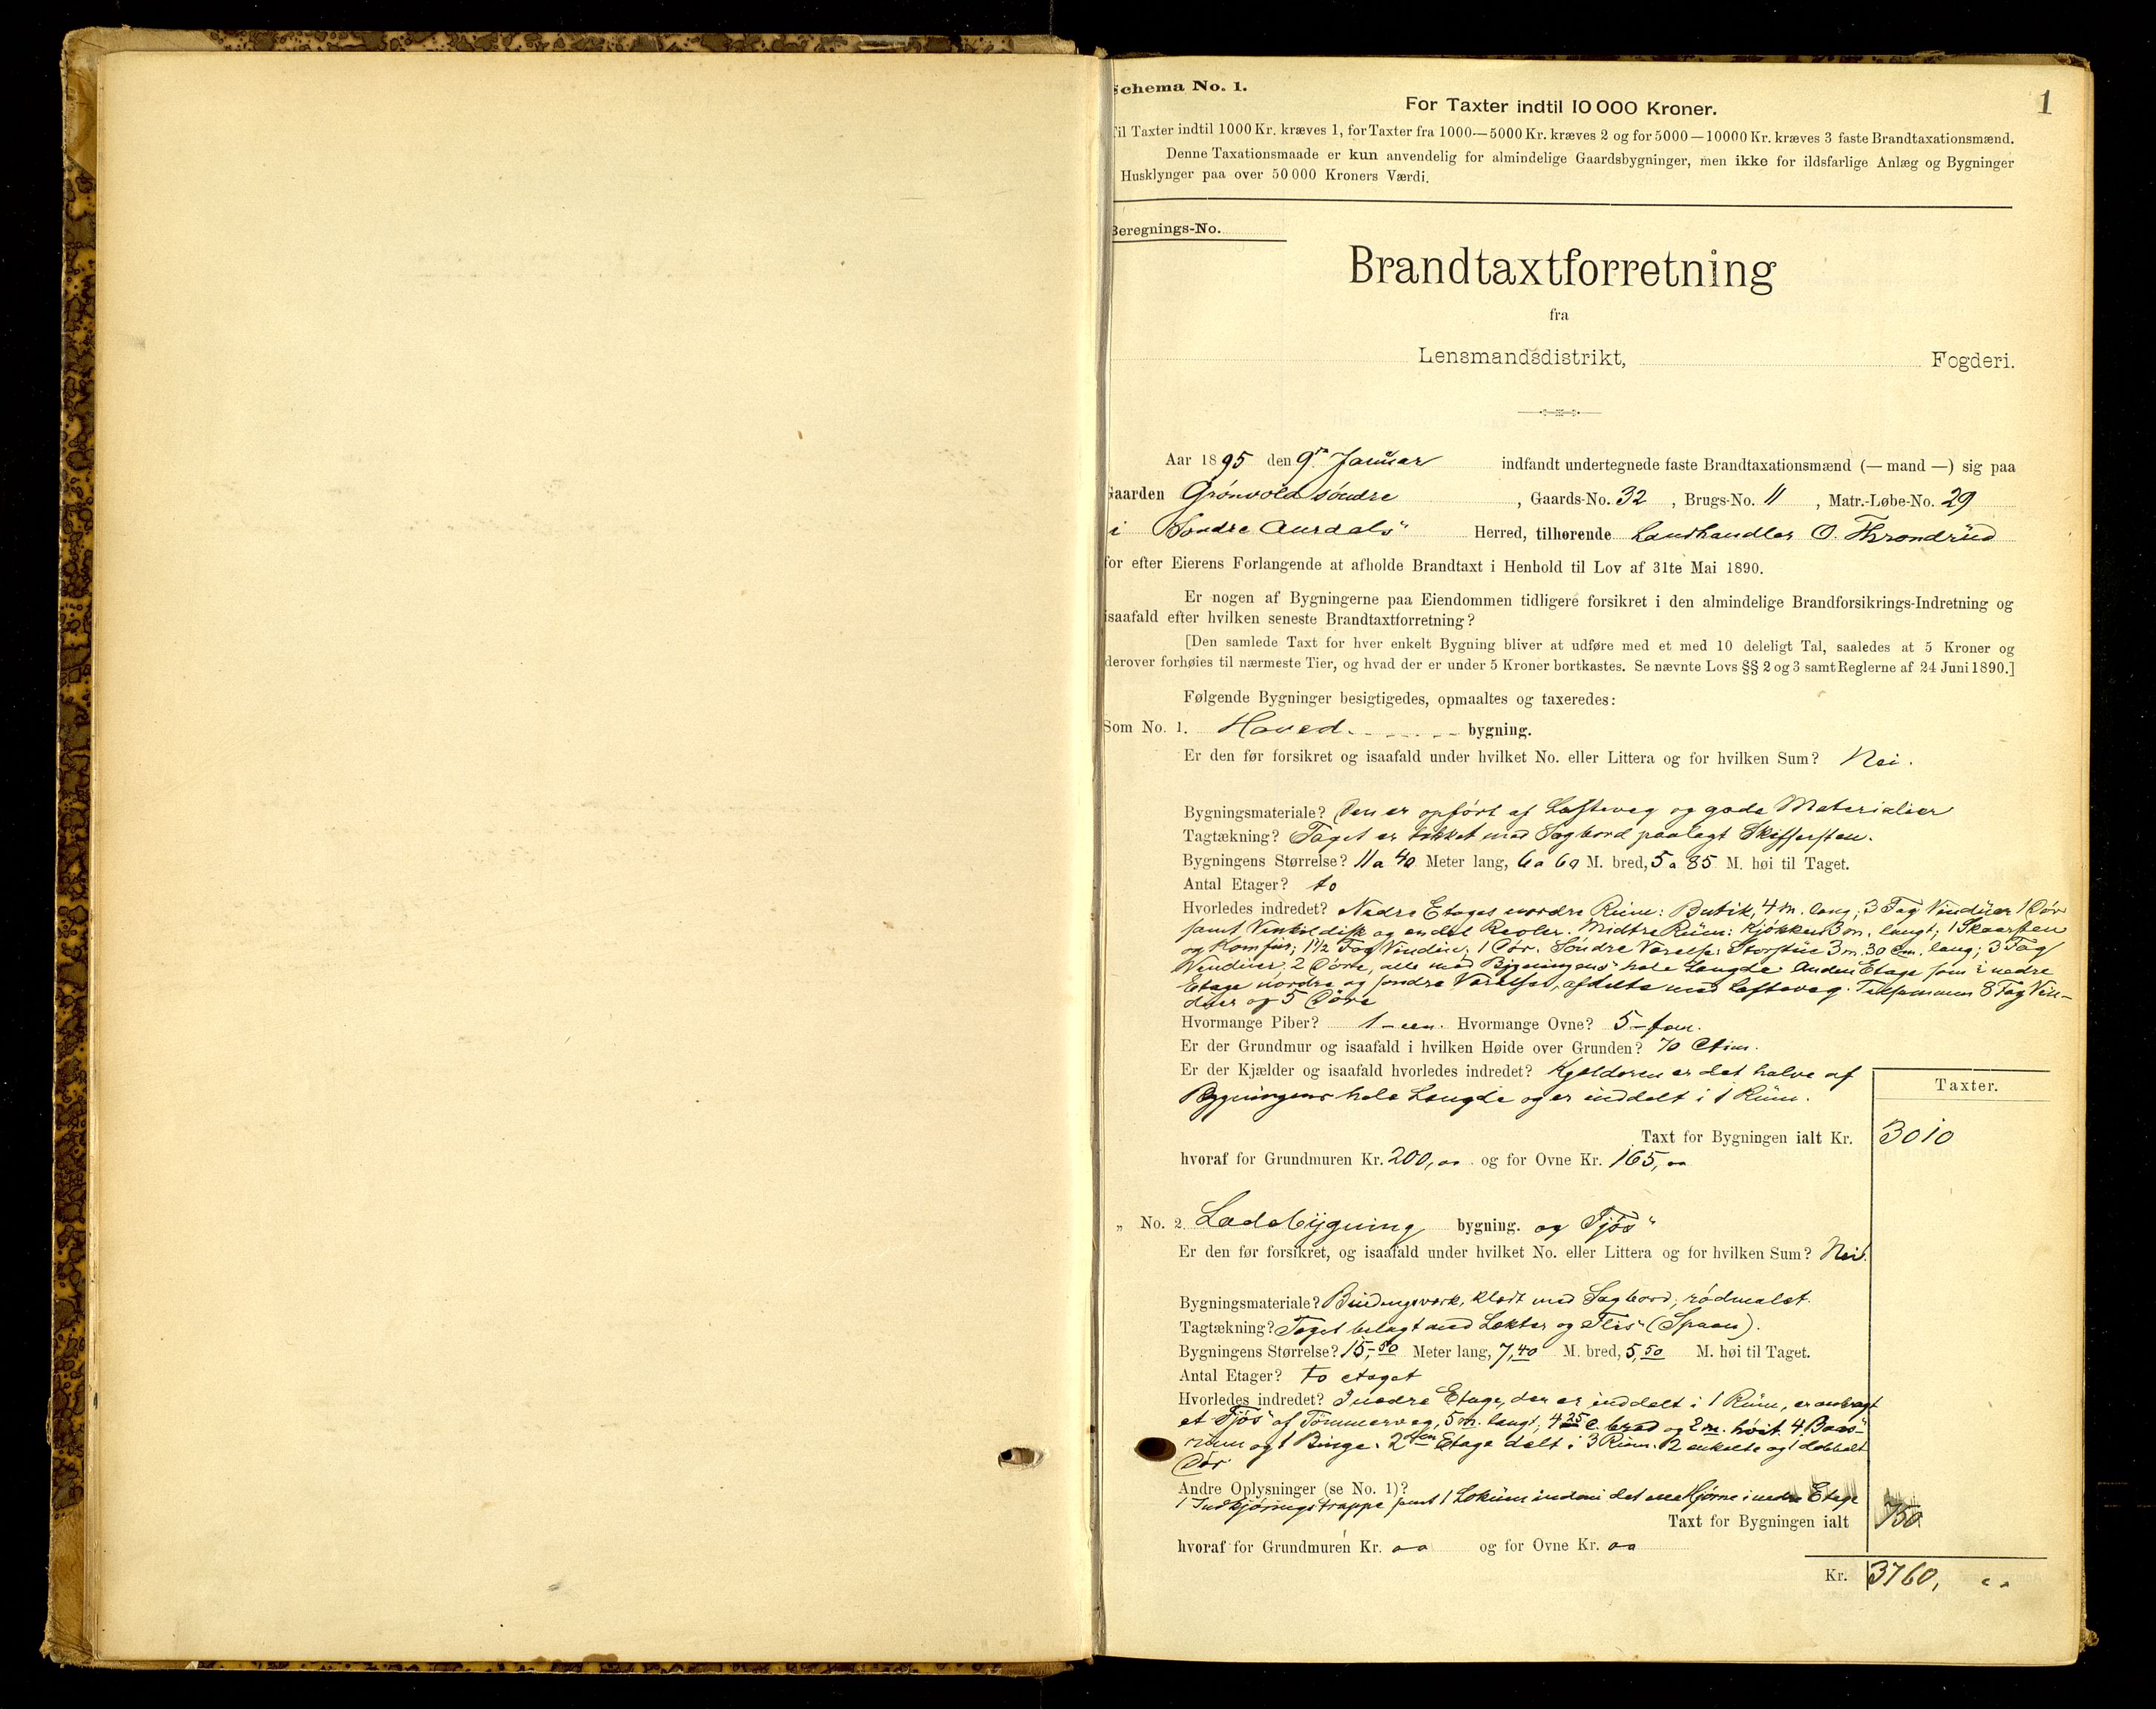 1
Schema No. 1.
For Taxter indtil 10 000 Kroner.
Til Taxter indtil 1000 Kr. kræves 1, for Taxter fra 1000—5000 Kr. kræves 2 og for 5000—10000 Kr. kræves 3 faste Brandtaxationsmænd.
Denne Taxationsmaade er kun anvendelig for almindelige Gaardsbygninger, men ikke for ildsfarlige Anlæg og Bygninger
Husklynger paa over 50 000 Kroners Værdi.
Beregnings-No.
Brandtaxtforretning
fra
Lensmandsdistrikt, Fogderi.
Aar 1895 den 9de Januar indfandt undertegnede faste Brandtaxationsmænd (— mand —) sig paa
Gaarden Grönvold söndre, Gaards-No. 32, Brugs-No. 11, Matr.-Løbe-No. 29
i Söndre Aurdals Herred, tilhørende Landhandler O. Throndrud
for efter Eierens Forlangende at afholde Brandtaxt i Henhold til Lov af 31te Mai 1890.
Er nogen af Bygningerne paa Eiendommen tidligere forsikret i den almindelige Brandforsikrings-Indretning og
isaafald efter hvilken seneste Brandtaxtforretning?
[Den samlede Taxt for hver enkelt Bygning bliver at udføre med et med 10 deleligt Tal, saaledes at 5 Kroner og
derover forhøies til nærmeste Tier, og hvad der er under 5 Kroner bortkastes. Se nævnte Lovs §§ 2 og 3 samt Reglerne af 24 Juni 1890.]
Følgende Bygninger besigtigedes, opmaaltes og taxeredes:
Som No. 1. Hoved- bygning.
Er den før forsikret og isaafald under hvilket No. eller Littera og for hvilken Sum? Nei.
Bygningsmateriale? Den er opfört af Lafteveg og gode Materialier
Tagtækning? Taget er tækket med Sagbord paalagt Skiffersten.
Bygningens Størrelse? 11 a 40 Meter lang, 6 a 60 M. bred, 5 a 85 M. høi til Taget.
Antal Etager? to
Hvorledes indredet? Nedre Etages nordre Rum: Butik, 4 m. lang; 3 Fag Vinduer 1 Dör
samt Vinkeldisk og endel Reoler. Midtre Rum: Kjökken 3 m. langt; 1 Skorsten
og Komfur; 1½ Fag Vindu; 1 Dör. Söndre Værelse: Storstue 3 m. 30 Cm. lang; 3 Fag
Vinduer, 2 Döre, alle med Bygningens hele Længde. Anden Etage som i nedre
Etage nordre og söndre Værelser, afdelte med Lafteveg. Tilsammen 8 Fag Vin-
duer og 5 Döre
Hvormange Piber? 1 - een. Hvormange Ovne? 5 - fem.
Er der Grundmur og isaafald i hvilken Høide over Grunden? 70 Ctm.
Er der Kjælder og isaafald hvorledes indredet? Kjælderen er det halve af
Bygningens hele Længde og er inddelt i 1 Rum.
Taxter.
Taxt for Bygningen ialt Kr. 3010
hvoraf for Grundmuren Kr. 200,00 og for Ovne Kr. 165,00
„ No. 2. Ladebygning bygning. og Fjös
Er den før forsikret, og isaafald under hvilket No. eller Littera og for hvilken Sum? Nei.
Bygningsmateriale? Bindingsverk, klædt med Sagbord; rödmalet.
Tagtækning? Taget belagt med Lekter og Flis (Spaan).
Bygningens Størrelse? 15,50 Meter lang, 7,40 M. bred, 5,50 M. høi til Taget.
Antal Etager? to etaget
Hvorledes indredet? I nedre Etage, der er inddelt i 1 Rum, er anbragt
et Fjös af Tömmerveg, 5 m. langt; 4 25 C. bred og 2 m. höit. 4 Baas-
rum og 1 Binge. 2den Etage delt i 3 Rum. 2 enkelte og 1 dobbelt
Dör.
Andre Oplysninger (se No. 1)?
1 Indkjöringstrappe samt 1 Lokum indeni det ene Hjörne i nedre Etage
Taxt for Bygningen ialt 750
hvoraf for Grundmuren Kr. 00 og for Ovne Kr. 00
Kr. 3760,